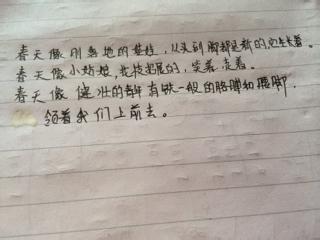 春天像刚落地的娃娃，从头到脚都是新的，它生长着。
春天像小姑娘，花枝招展的，笑着，走着。
春天像健壮的青年，有铁一般的胳膊和腰脚，
领着我们上前去。